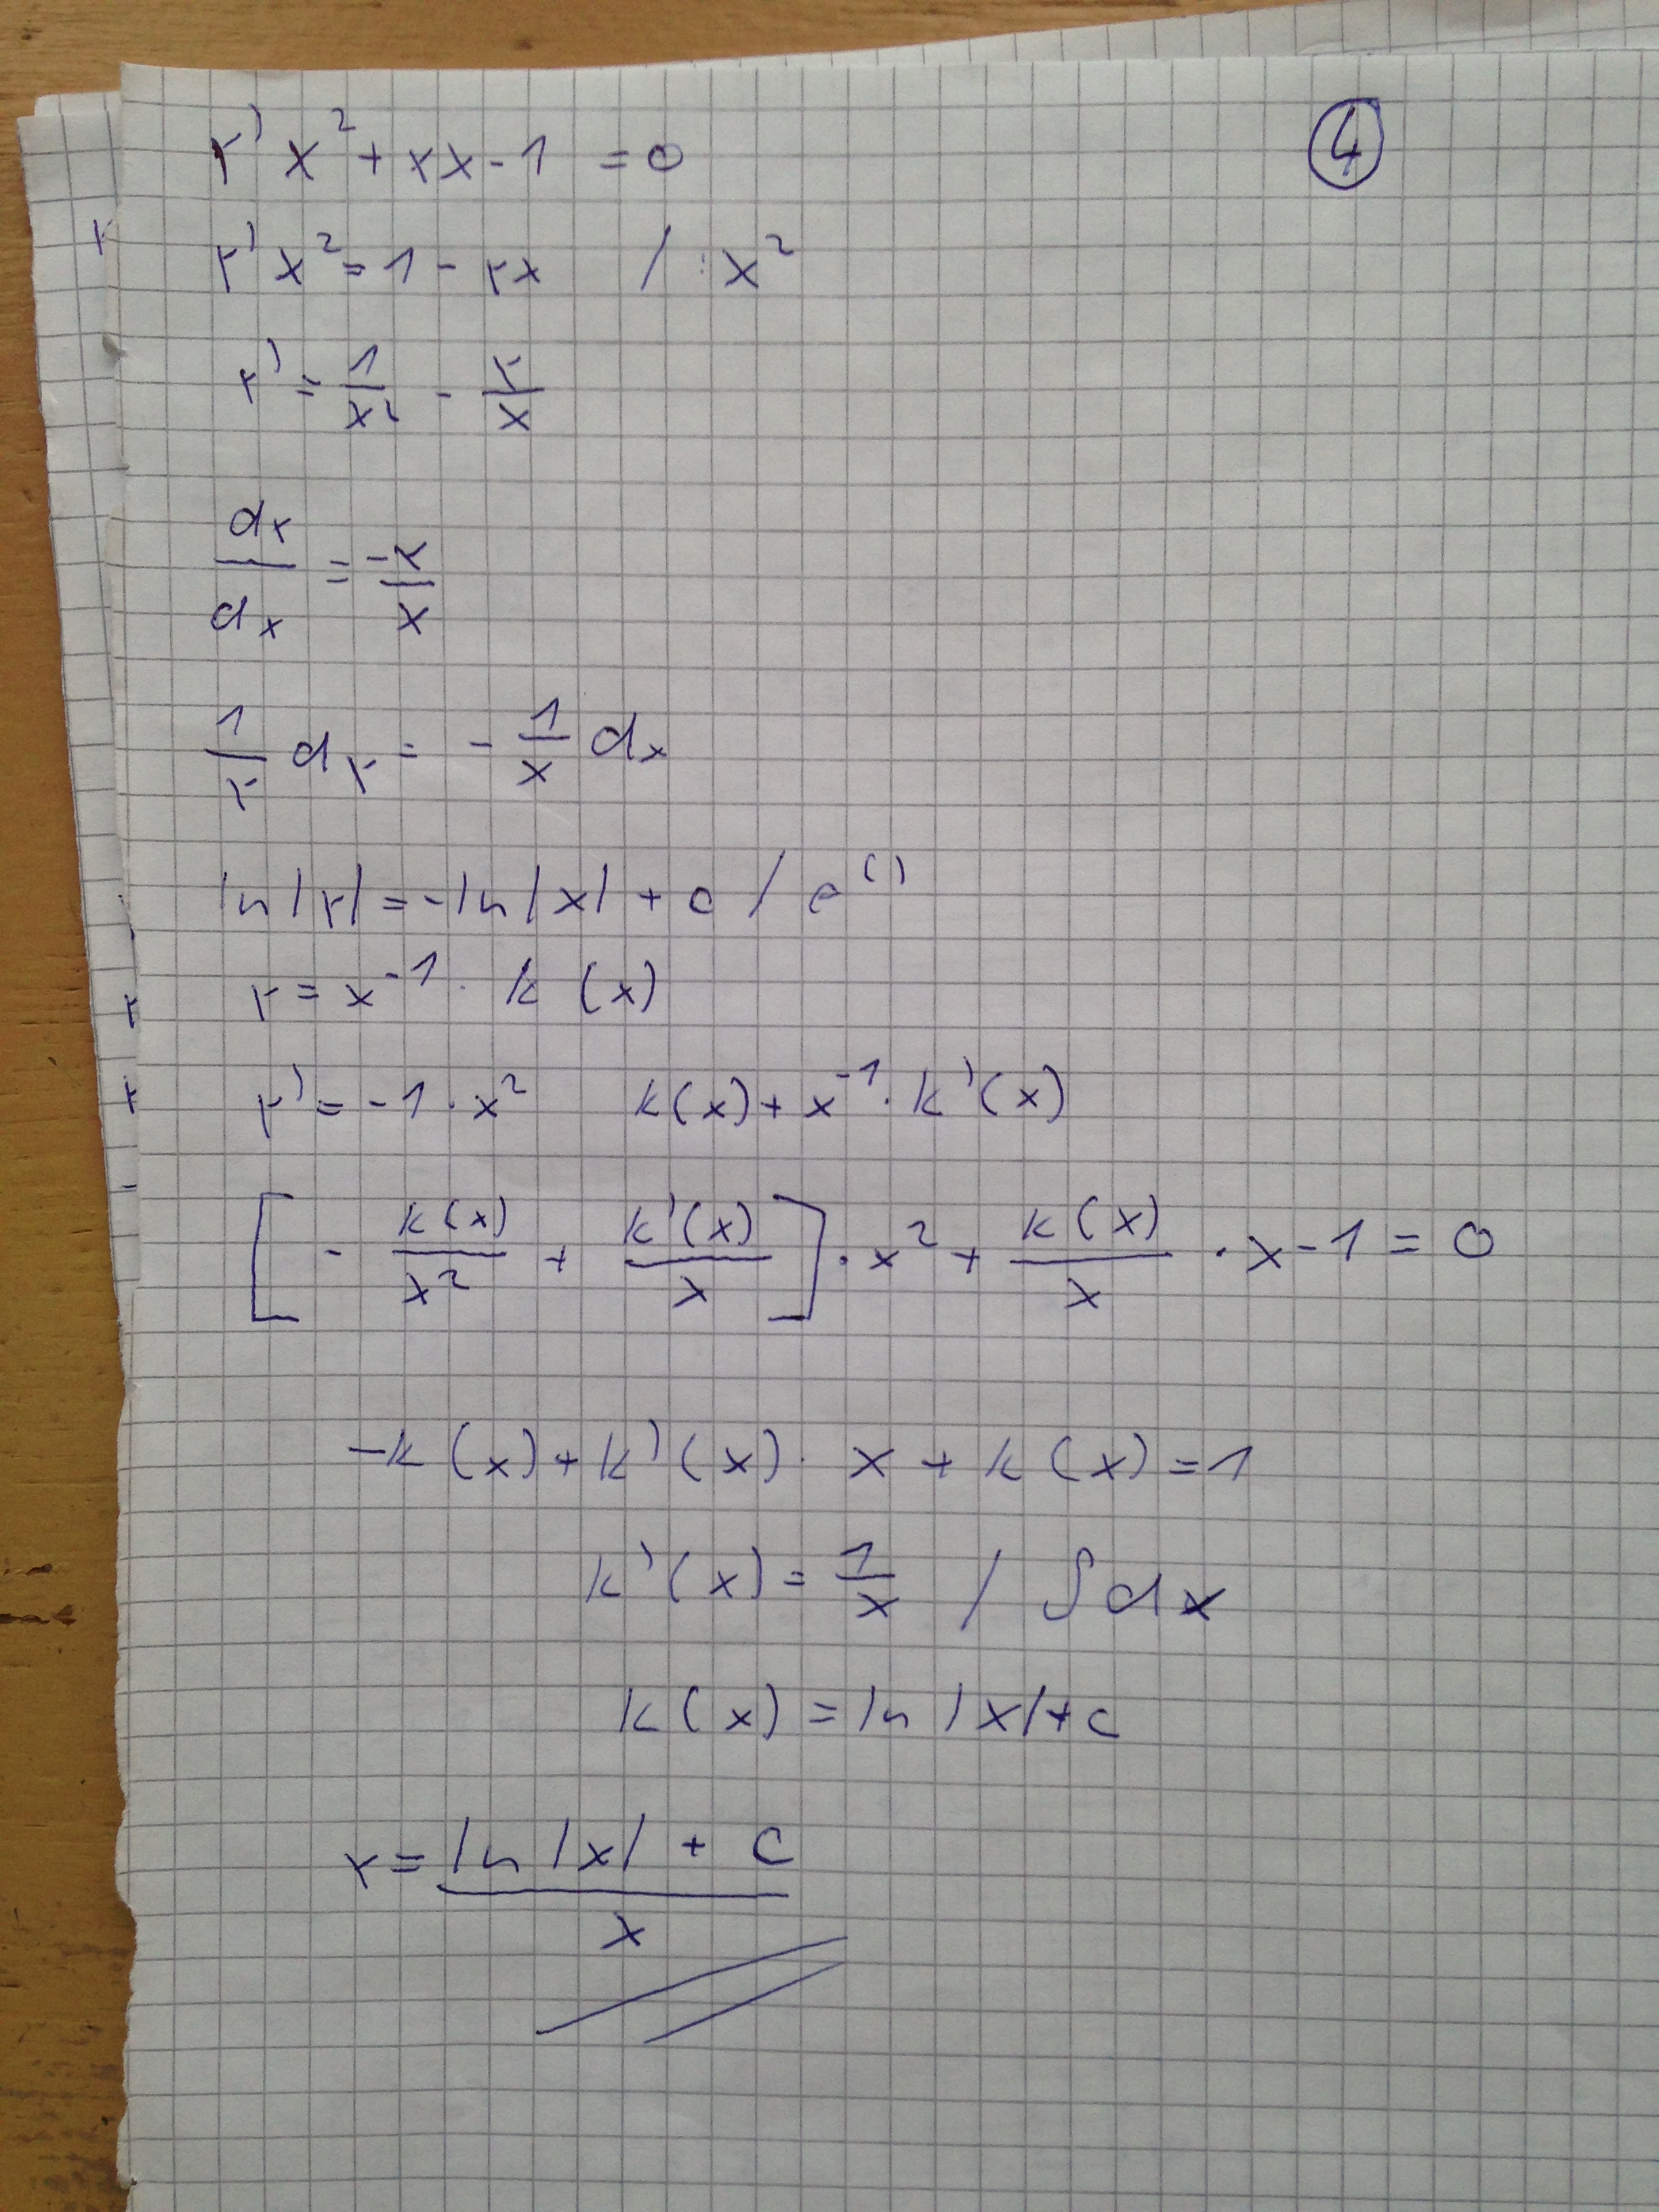 ④
y' x² + yx - 1 = 0
y' x² = 1 - yx / : x²
y' = 1/x² - y/x
dy/dx = -y/x
1/y dy = - 1/x dx
ln |y| = -ln |x| + c / e^( )
y = x^-1 · k (x)
y' = -1 · x² k(x) + x^-1 · k'(x)
[ - k(x)/x² + k'(x)/x ] · x² + k(x)/x · x - 1 = 0
-k (x) + k' (x) · x + k (x) = 1
k' (x) = 1/x / ∫ dx
k (x) = ln |x| + c
y = (ln |x| + C)/x